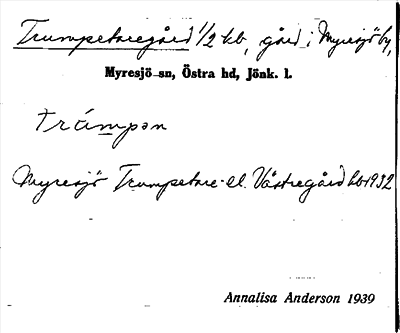 Trumpetaregård 1/2 hb, gård i Myresjö by,
Myresjö sn, Östra hd, Jönk. l.
trámpən
Myresjö Trumpetare- el. Västregård hb 1932
Annalisa Anderson 1939